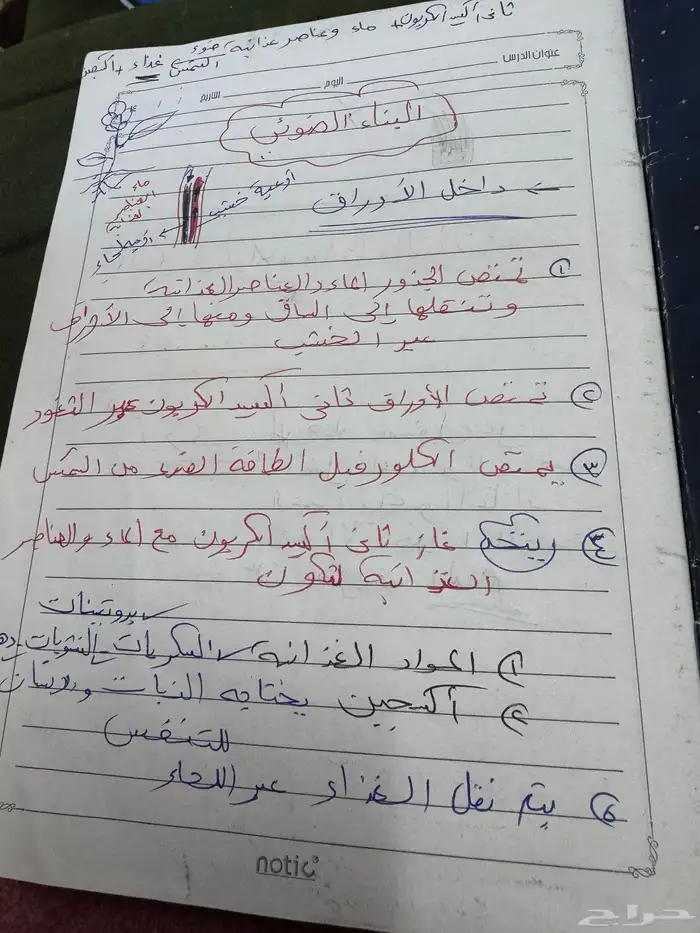 ثاني أكسيد الكربون + ماء وعناصر غذائية ضوء
الشمس غذاء + أكسجين
عنوان الدرس
اليوم
التاريخ
البناء الضوئي
← داخل الأوراق
أوعية خشب
ماء
العناصر
أوعية لحاء
① تمتص الجذور الماء والعناصر الغذائية
وتنقلها إلى الساق ومنها إلى الأوراق
عبر الخشب
② تمتص الأوراق ثاني أكسيد الكربون عبر الثغور
③ يمتص الكلورفيل الطاقة الضوء من الشمس
④ يتحد غاز ثاني أكسيد الكربون مع الماء والعناصر
الغذائية لتكون
بروتينات
1) المواد الغذائية السكريات - النشويات
2) أكسجين يحتاجه النبات
للتنفس
5) يتم نقل الغذاء عبر اللحاء
notic
حراج